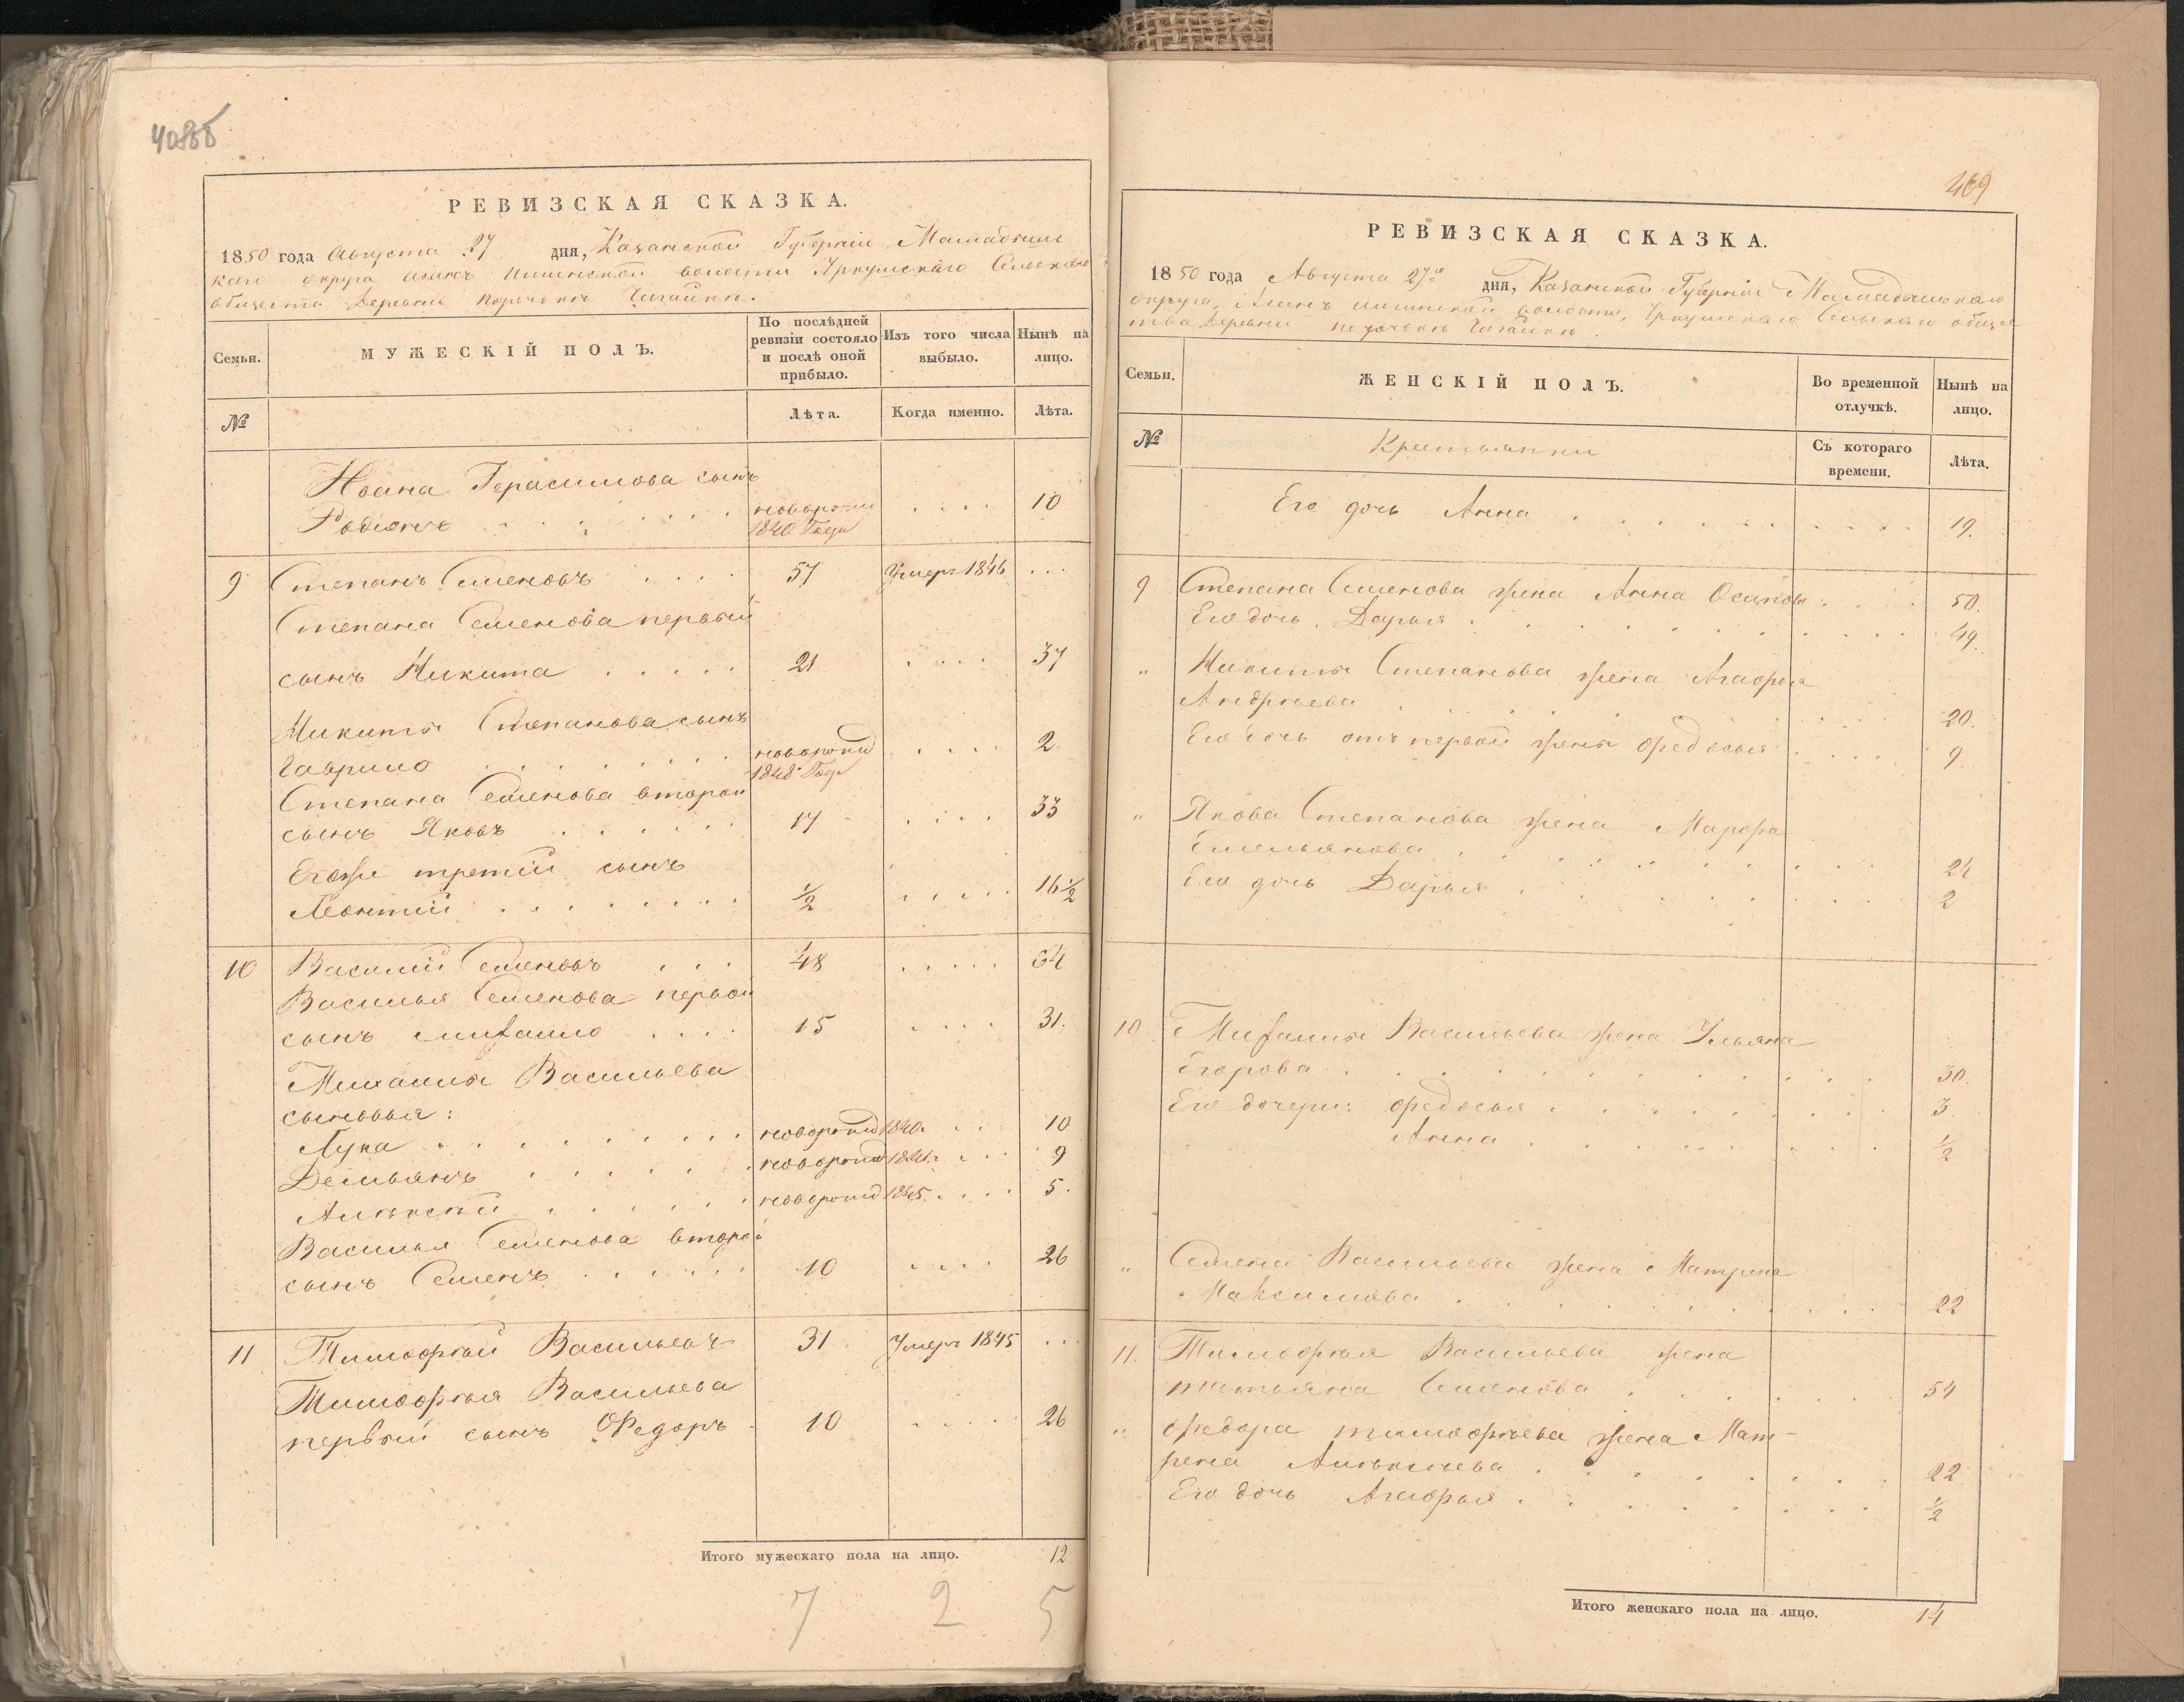 408об
РЕВИЗСКАЯ СКАЗКА.
1850 года Августа 27 дня, Казанской Губерніи Мамадыш
каго округа волости Сельскаго
общества Деревни
Семьи.
МУЖЕСКІЙ ПОЛЪ.
По послѣдней ревизіи состояло и послѣ оной прибыло.
Изъ того числа выбыло.
Нынѣ на лицо.
№
Лѣта.
Когда именно.
Лѣта.
Ивана Герасимова сынъ
Родіонъ новорожд 1840 Года 10
9 Степанъ Семеновъ 57 Умеръ 1846
Степана Семенова первый
сынъ Никита 21 37
Никиты Степанова сынъ
Гаврило новорожд 1848 Года 2
Степана Семенова второй
сынъ Яковъ 17 33
Егоже третій сынъ
Леонтій ½ 16½
10 Василій Семеновъ 48 64
Василья Семенова первой
сынъ Михайло 15 31.
Михайлы Васильева
сыновья:
Лука новорожд 1840. 10
Демьянъ новорожд 1841. 9
Алексѣй новорожд 1845. 5.
Василья Семенова второй
сынъ Семенъ 10 26
11 Тимофѣй Васильевъ 31 Умеръ 1845
Тимофѣя Васильева
первый сынъ Федоръ 10 26
Итого мужескаго пола на лицо. 12
7 2 5
409
РЕВИЗСКАЯ СКАЗКА.
1850 года Августа 27го дня, Казанской Губерніи Мамадышскаго
округа, волости, Сельскаго общес
тва Деревни
Семьи.
ЖЕНСКІЙ ПОЛЪ.
Во временной отлучкѣ.
Нынѣ на лицо.
№
Крестьянки
Съ котораго времени.
Лѣта.
Его дочь Анна 19.
9 Степана Семенова жена Анна Осипова 50.
Его дочь Дарья 49.
" Никиты Степанова жена Агафья
Андрѣева 20.
Его дочь отъ первой жены Федосья 9.
" Якова Степанова жена Марфа
Емельянова 24
Его дочь Дарья 2
10 Михайлы Васильева жена Ульяна
Егорова 30.
Его дочери: Федосья 3
Анна ½
" Семена Васильева жена Матрена
Максимова 22
11. Тимофѣя Васильева жена
Татьяна Семенова 54
" Федора Тимофѣева жена Мат-
рена Алексѣева 22
Его дочь Агафья ½
Итого женскаго пола на лицо. 14